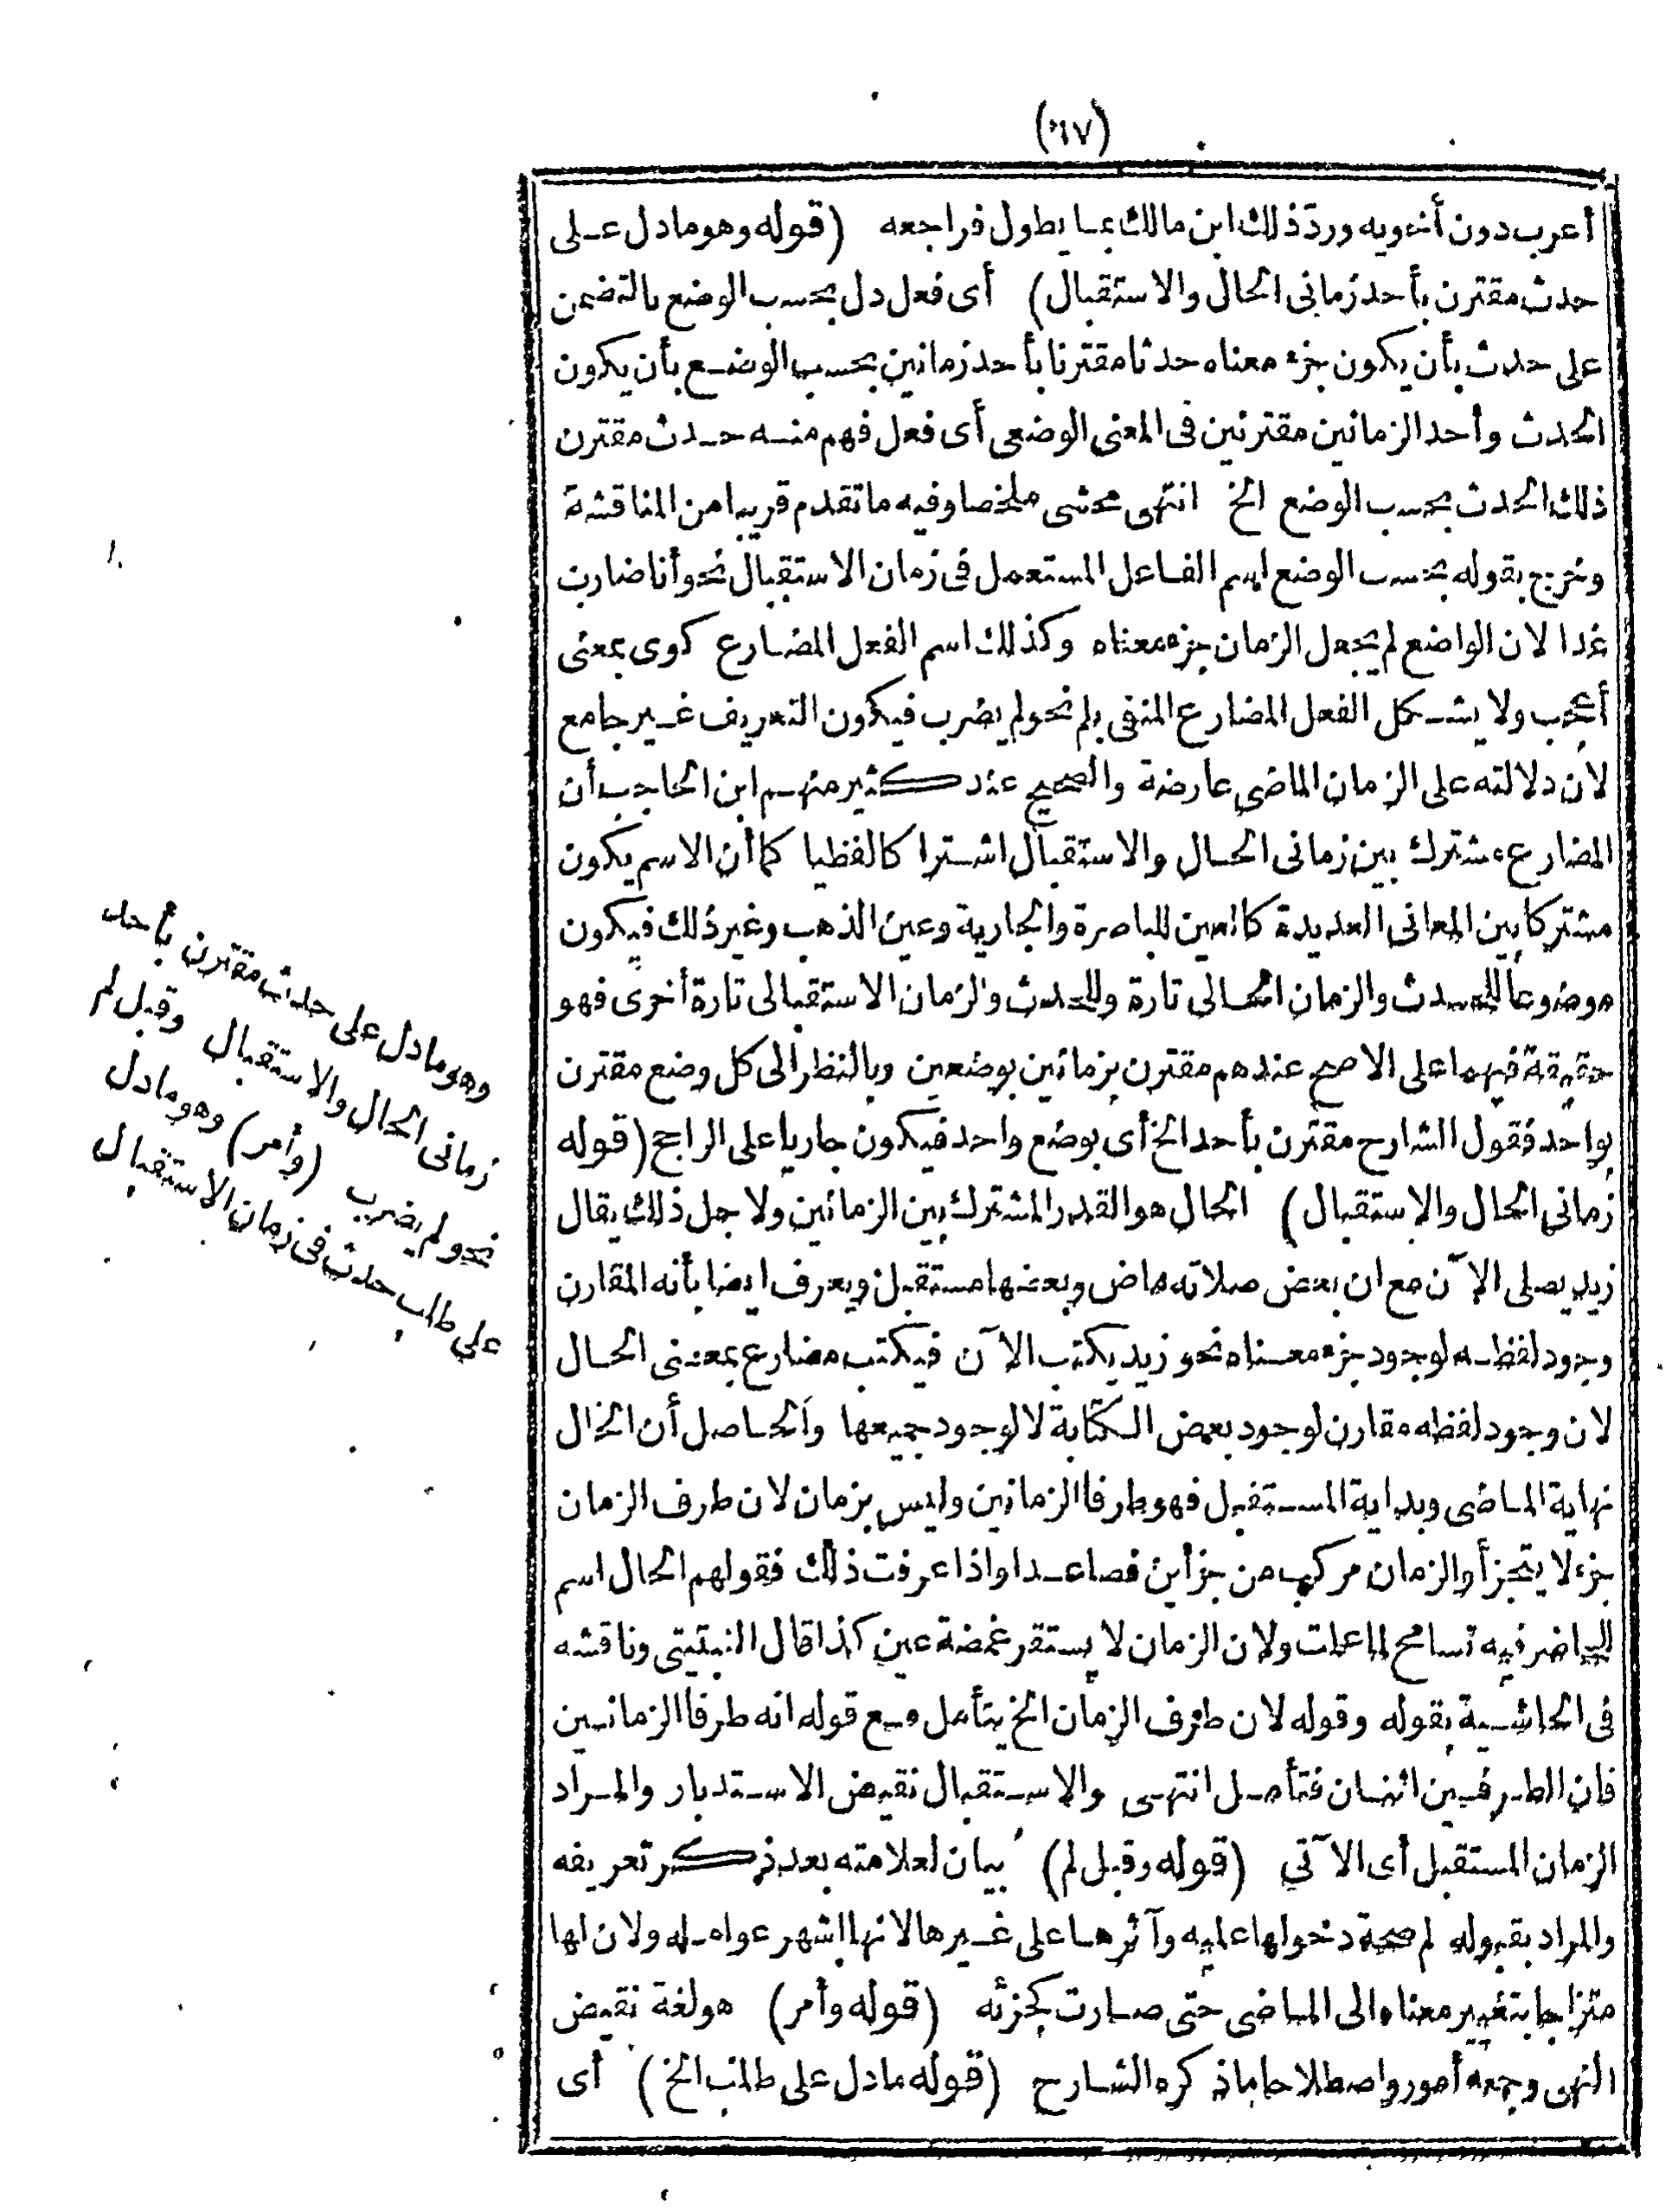 (٦٧)
أعرب دون أخويه وردّ ذلك ابن مالك بما يطول فراجعه (قوله وهو ما دل على
حدث مقترن بأحد زمانى الحال والاستقبال) أى فعل دل بحسب الوضع بالتضمن
على حدث بأن يكون جزء معناه حدثا مقترنا بأحد زمانين بحسب الوضع بأن يكون
الحدث وأحد الزمانين مقترنين فى المعنى الوضعى أى فعل فهم منه حدث مقترن
ذلك الحدث بحسب الوضع الخ انتهى محشى ملخصا وفيه ما تقدم قريبا من المناقشة
وخرج بقوله بحسب الوضع اسم الفاعل المستعمل فى زمان الاستقبال نحو أنا ضارب
غدا لان الواضع لم يجعل الزمان جزء معناه وكذلك اسم الفعل المضارع كوى بمعنى
أعجب ولا يشكل الفعل المضارع المنفى بلم نحو لم يضرب فيكون التعريف غير جامع
لان دلالته على الزمان الماضى عارضة والصحيح عند كثير منهم ابن الحاجب أن
المضارع مشترك بين زمانى الحال والاستقبال اشتراكا لفظيا كما أن الاسم يكون
مشتركا بين المعانى العديدة كالعين للباصرة والجارية وعين الذهب وغير ذلك فيكون
موضوعا للحدث والزمان الحالى تارة وللحدث والزمان الاستقبالى تارة أخرى فهو
حقيقة فيهما على الاصح عندهم مقترن بزمانين بوضعين وبالنظر الى كل وضع مقترن
بواحد فقول الشارح مقترن بأحد الخ أى بوضع واحد فيكون جاريا على الراجح (قوله
زمانى الحال والاستقبال) الحال هو القدر المشترك بين الزمانين ولاجل ذلك يقال
زيد يصلى الآن مع ان بعض صلاته ماض وبعضها مستقبل ويعرف ايضا بأنه المقارن
وجود لفظه لوجود جزء معناه نحو زيد يكتب الآن فيكتب مضارع بمعنى الحال
لان وجود لفظه مقارن لوجود بعض الكتابة لا لوجود جميعها والحاصل أن الحال
نهاية الماضى وبداية المستقبل فهو طرفا الزمانين وليس بزمان لان طرف الزمان
جزء لا يتجزأ والزمان مركب من جزأين فصاعدا واذا عرفت ذلك فقولهم الحال اسم
للحاضر فيه تسامح لما علمت ولان الزمان لا يستقر غمضة عين كذا قال النبتيتى وناقشه
فى الحاشية بقوله وقوله لان طرف الزمان الخ يتأمل مع قوله انه طرفا الزمانين
فان الطرفين اثنان فتأمل انتهى والاستقبال نقيض الاستدبار والمراد
الزمان المستقبل أى الآتى (قوله وقبل لم) بيان لعلامته بعد ذكر تعريفه
والمراد بقبوله لم صحة دخولها عليه وآثرها على غيرها لانها اشهر عوامله ولان لها
امتزاجا بتغيير معناه الى الماضى حتى صارت كجزئه (قوله وأمر) هو لغة نقيض
النهى وجمعه أمور واصطلاحا ما ذكره الشارح (قوله ما دل على طلب الخ) أى
وهو ما دل على حدث مقترن بأحد
زمانى الحال والاستقبال وقبل لم
نحو لم يضرب (وأمر) وهو ما دل
على طلب حدث فى زمان الاستقبال